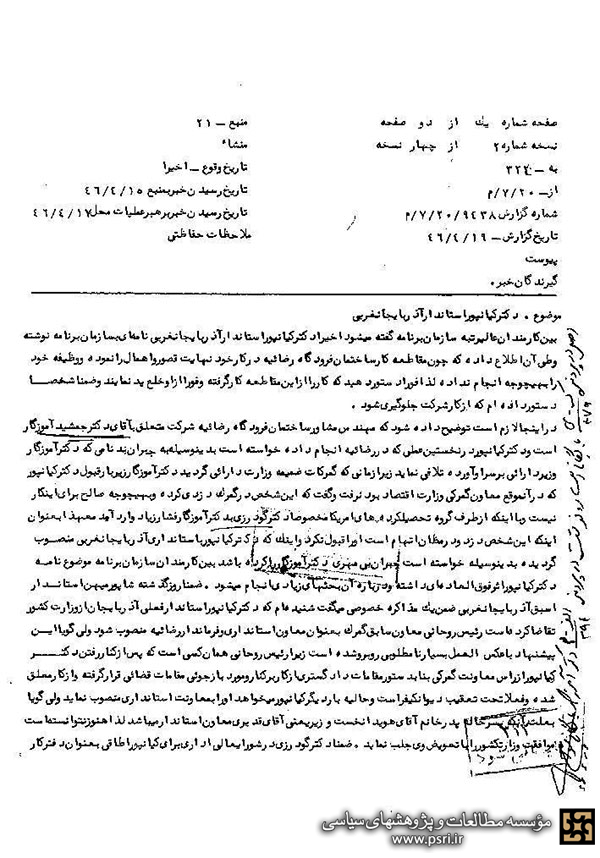 صفحه شماره یک از دو صفحه
نسخه شماره ۲ از چهار نسخه
به – ۳۲۲
از – ۷/۲۰/م
شماره گزارش ۷/۲۰/۹۴۳۸/م
تاریخ گزارش – ۴۶/۴/۱۹
پیوست
گیرندگان خبر.
منبع – ۲۱
منشاء
تاریخ وقوع – اخیرا
تاریخ رسیدن خبر بمنبع ۴۶/۴/۱۵
تاریخ رسیدن خبر برهبر عملیات محل ۴۶/۴/۱۷
ملاحظات حفاظتی
موضوع . دکتر کیانپور استاندار آذربایجانغربی
بین کارمندان عالیرتبه سازمان برنامه گفته میشود اخیرا دکتر کیانپور استاندار آذربایجانغربی نامه‌ای بسازمان برنامه نوشته
وطی آن اطلاع داده که چون مقاطعه کار ساختمان فرودگاه رضائیه در کار خود نهایت قصور و اهمال را نموده و وظیفه خود
را بهیچوجه انجام نداده لذا فورا دستور دهید که کار را از این مقاطعه کار گرفته و فورا از او خلع ید نمایند و ضمنا شخصا
دستور داده ام که از کار شرکت جلوگیری شود.
در اینجا لازم است توضیح داده شود که مهندس مشاور ساختمان فرودگاه رضائیه شرکت متعلق بآقای دکتر جمشید آموزگار
است و دکتر کیانپور در نخستین عملی که در رضائیه انجام داده خواسته است بدینوسیله به جبران بدنامی که دکتر آموزگار
وزیر دارائی بر سر او آورده تلافی نماید زیرا زمانی که گمرکات ضمیمه وزارت دارائی گردید دکتر آموزگار زیر بار قبول دکتر کیانپور
که در آنموقع معاون گمرکی وزارت اقتصاد بود نرفت و گفت که این شخص در گمرک دزدی کرده و بهیچوجه صالح برای اینکار
نیست و با اینکه از طرف گروه تحصیلکرده های امریکا مخصوصا دکتر گودرزی بدکتر آموزگار فشار زیاد وارد آمد معهذا بعنوان
اینکه این شخص دزد و در مظان اتهام است او را قبول نکرد و اینک که دکتر کیانپور استانداری آذربایجانغربی منصوب
گردیده بدینوسیله خواسته است جبران بی مهری دکتر آموزگار را کرده باشد بین کارمندان سازمان برنامه موضوع نامه
دکتر کیانپور اثر فوق العاده‌ای داشته و درباره آن بحثهای زیادی انجام میشود . ضمنا روز گذشته شاپور میهن استاندار
اسبق آذربایجانغربی ضمن یک مذاکره خصوصی میگفت شنیده ام که دکتر کیانپور استاندار فعلی آذربایجان از وزارت کشور
تقاضا کرده است رئیس روحانی معاون سابق گمرک بعنوان معاون استانداری و فرماندار رضائیه منصوب شود ولی گویا این
پیشنهاد با عکس العمل بسیار نامطلوبی روبرو شده است زیرا رئیس روحانی همان کسی است که پس از کنار رفتن دکتر
کیانپور از رأس معاونت گمرکی بنا بدستور مقامات دادگستری از کار برکنار و مورد بازجوئی مقامات قضائی قرار گرفته و از کار معلق
شده و فعلا تحت تعقیب دیوانکیفر است و حالیه باردیگر کیانپور میخواهد او را بمعاونت استانداری منصوب نماید ولی گویا
بعلت آنکه پسر خاله پدر خانم آقای هویدا نخست وزیر یعنی آقای قدیری معاون استاندار میباشد لذا هنوز نتوانسته است
موافقت وزارت کشور را با تعویض وی جلب نماید . ضمنا دکتر گودرزی در شورایعالی اداری برای کیانپور اطاقی بعنوان دفتر کار
مؤسسه مطالعات و پژوهشهای سیاسی
www.psri.ir